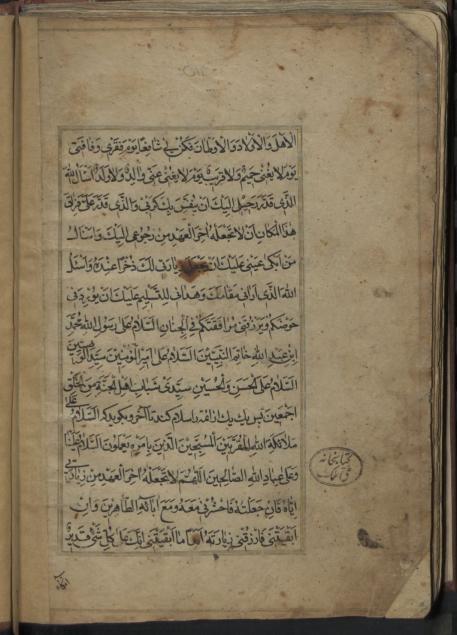 الاهل والاولاد والاوطان فكن لى شافعا يوم فقرى وفاقتى
يوم لا يغنى حميم ولا قريب يوم لا يغنى عنى والدى ولا ولدى اسال الله
الذى قدر رحيل اليك ان ينفس بك كربى والذى قدر على فراق
هذا المكان ان لا تجعله اخر العهد من رجوعى اليك واسال
من ابكى عينى عليك ان يجعله لى ذخرا عنده واسئل
الله الذى ارانى مقامك وهدانى للتسليم عليك ان يوردنى
حوضكم ويرزقنى مرافقتكم فى الجنان السلام على رسول الله محمد
ابن عبد الله خاتم النبيين السلام على امير المؤمنين سيد الوصيين
السلام على الحسن والحسين سيدى شباب اهل الجنة من الخلق
اجمعين پس يك يك از ائمه را سلام كند تا آخر و بگويد كه السلام على
ملائكة الله المقربين المسبحين الذين بامره يعملون السلام علينا
وعلى عباد الله الصالحين اللهم لا تجعله اخر العهد من زيارتى
اياه فان جعلته فاحشرنى معه ومع آبائه الطاهرين وان
ابقيتنى فارزقنى زيارته ابدا ما ابقيتنى انك على كل شئ قدير